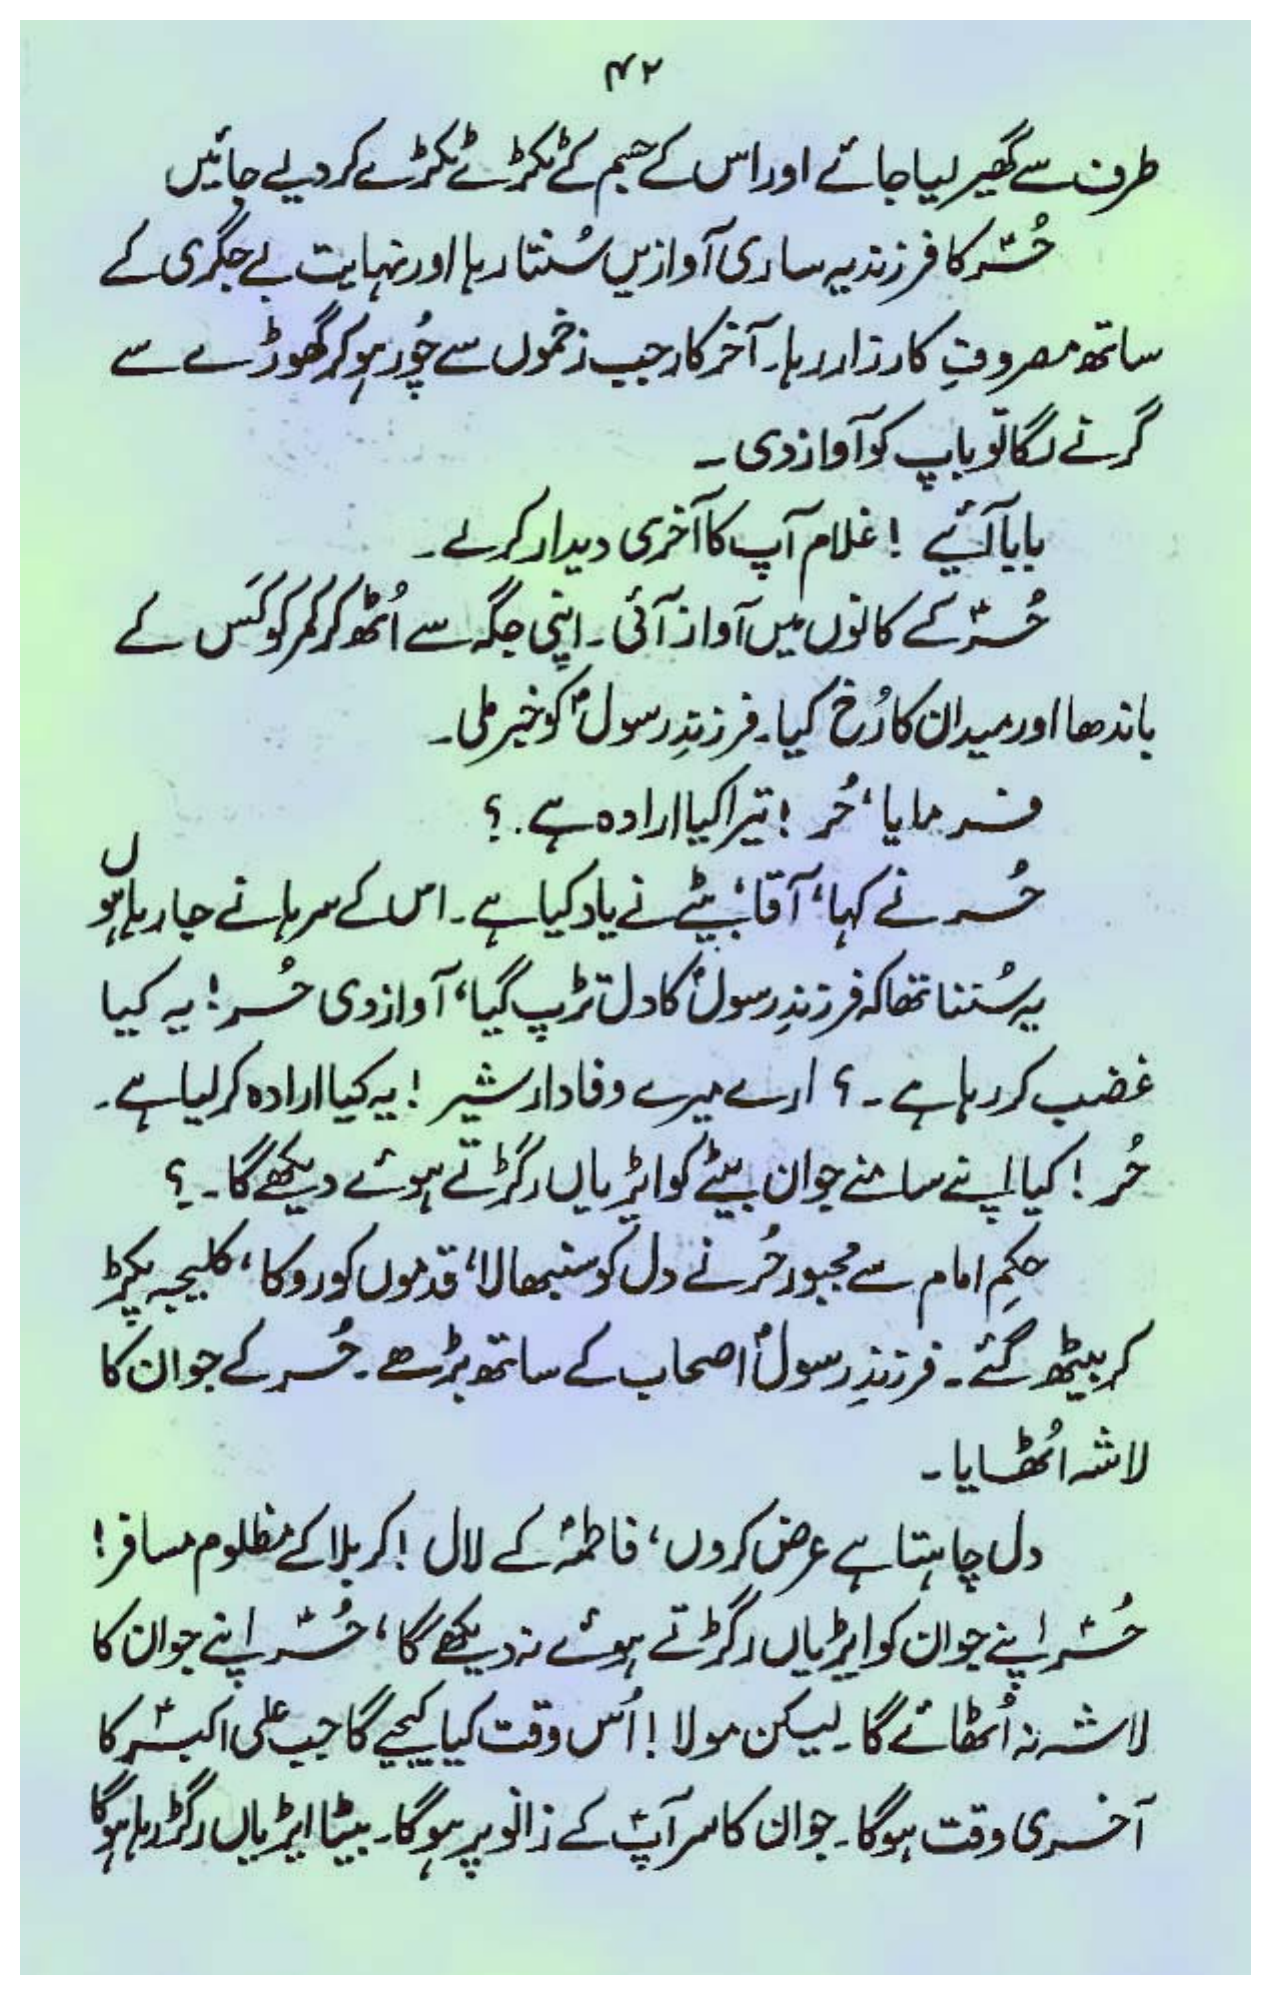 ۴۲
طرف سے گھیر لیا جائے اور اس کے جسم کے ٹکڑے ٹکڑے کر دیے جائیں
حُرؑ کا فرزند یہ ساری آوازیں سُنتا رہا اور نہایت بے جگری کے
ساتھ مصروفِ کارزار رہا۔ آخر کار جب زخموں سے چُور ہو کر گھوڑے سے
گرنے لگا تو باپ کو آواز دی ۔
بابا آئیے ! غلام آپ کا آخری دیدار کرلے ۔
حُرؑ کے کانوں میں آواز آئی ۔ اپنی جگہ سے اُٹھ کر کمر کو کَس کے
باندھا اور میدان کا رُخ کیا۔ فرزندِ رسولؐ کو خبر ملی ۔
فرمایا، حُر ! تیرا کیا ارادہ ہے ۔ ؟
حُر نے کہا، آقا، بیٹے نے یاد کیا ہے ۔ اس کے سرہانے جا رہا ہوں
یہ سُننا تھا کہ فرزندِ رسولؐ کا دل تڑپ گیا، آواز دی حُر ! یہ کیا
غضب کر رہا ہے ۔ ؟ ارے میرے وفادار شیر ! یہ کیا ارادہ کر لیا ہے ۔
حُر ! کیا اپنے سامنے جوان بیٹے کو ایڑیاں رگڑتے ہوئے دیکھے گا ۔ ؟
حکمِ امام سے مجبور حُر نے دل کو سنبھالا، قدموں کو روکا، کلیجہ پکڑ
کر بیٹھ گئے ۔ فرزندِ رسولؐ اصحاب کے ساتھ بڑھے ۔ حُر کے جوان کا
لاشہ اُٹھایا ۔
دل چاہتا ہے عرض کروں، فاطمہؑ کے لال ! کربلا کے مظلوم مسافر !
حُرؑ اپنے جوان کو ایڑیاں رگڑتے ہوئے نہ دیکھے گا، حُرؑ اپنے جوان کا
لاشہ نہ اُٹھائے گا ۔ لیکن مولا ! اُس وقت کیا کیجیے گا جب علی اکبرؑ کا
آخری وقت ہوگا ۔ جوان کا سر آپؑ کے زانو پر ہوگا ۔ بیٹا ایڑیاں رگڑ رہا ہوگا